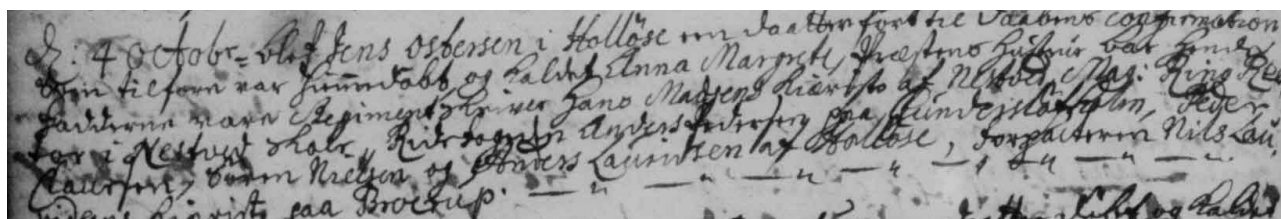 d: 4 Octobr: blef Jens Ostersen i Holløse en daatter ført til Daabens Confirmation
som tilforn var hiemmdøbt, og kaldet Anna Margrete, Præstens Hustrue bar hende,
Fadderne vare Regimentskriver Hans Madsens Kiæriste af Nestved, Mag: Ring Rec
tor i Nestved Skole, Ridefogden Anders Pedersen paa Gunderslefholm, Peder
Laursen, Søren Nielsen og Anders Lauridsen af Holløse, Forpalteren Nils Lau,
ridsens kiæriste paa Broerup.
og kaldet